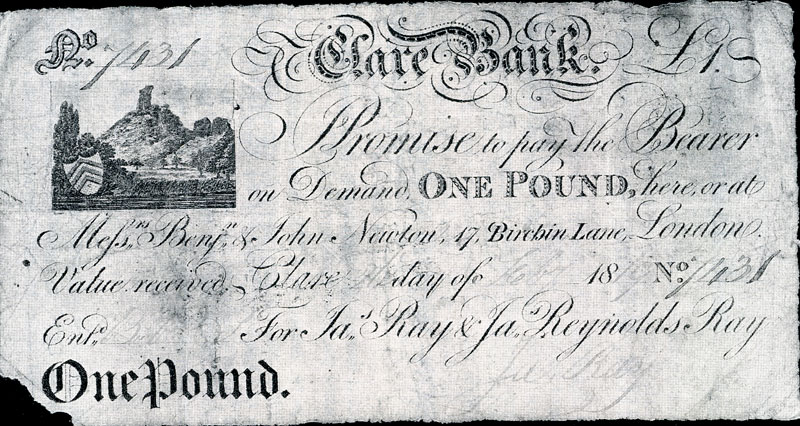 No. 7431 Clare Bank. £1.
Promise to pay the Bearer
on Demand, ONE POUND, here, or at
Mess.rs Benj.n & John Newton, 17, Birchin Lane, London.
Value received, Clare day of 18 No. 7431
Ent.d For Ja.s Ray & Ja.s Reynolds Ray
One Pound. Ray